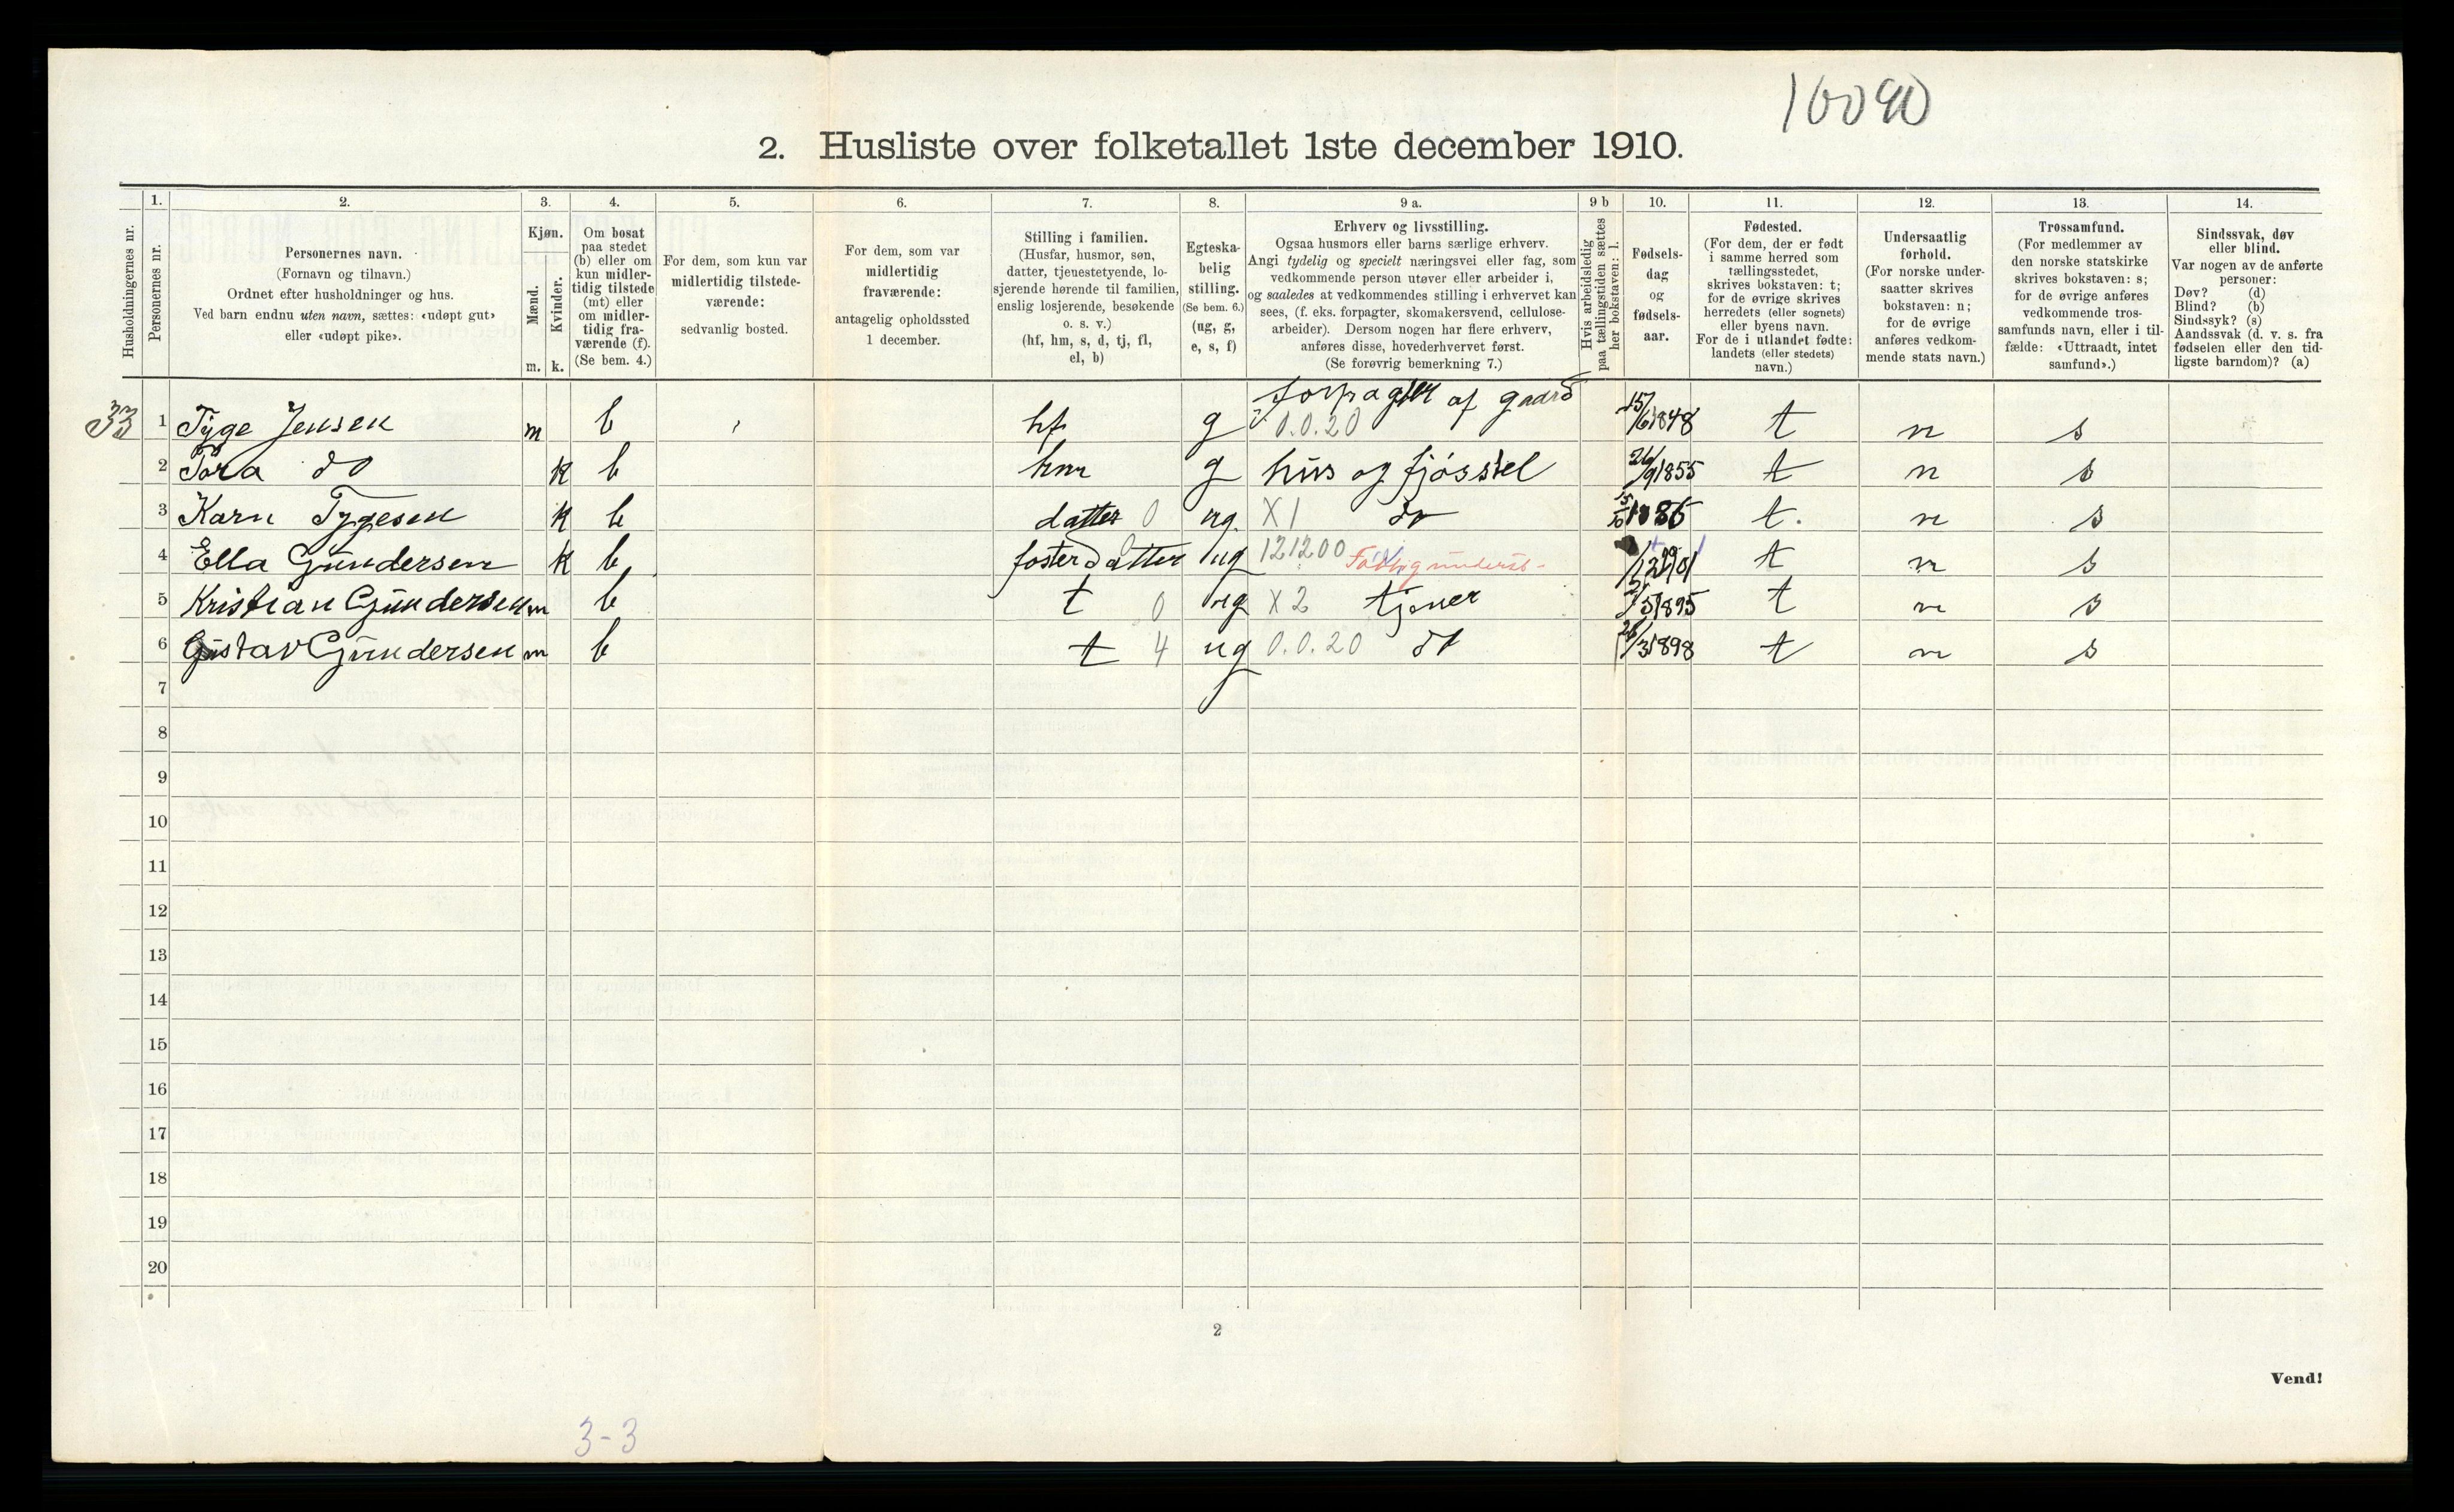 10090
2. Husliste over folketallet 1ste december 1910.
Husholdningernes nr.
1.
Personernes nr.
2.
Personernes navn.
(Fornavn og tilnavn.)
Ordnet efter husholdninger og hus.
Ved barn endnu uten navn, sættes: «udøpt gut»
eller «udøpt pike».
3.
Kjøn.
Mænd.
Kvinder.
m. k.
4.
Om bosat
paa stedet
(b) eller om
kun midler-
tidig tilstede
(mt) eller
om midler-
tidig fra-
værende (f).
(Se bem. 4.)
5.
For dem, som kun var
midlertidig tilstede-
værende:
sedvanlig bosted.
6.
For dem, som var
midlertidig
fraværende:
antagelig opholdssted
1 december.
7.
Stilling i familien.
(Husfar, husmor, søn,
datter, tjenestetyende, lo-
sjerende hørende til familien,
enslig losjerende, besøkende
o. s. v.)
(hf, hm, s, d, tj, fl,
el, b)
8.
Egteska-
belig
stilling.
(Se bem. 6.)
(ug, g,
e, s, f)
9 a.
Erhverv og livsstilling.
Ogsaa husmors eller barns særlige erhverv.
Angi tydelig og specielt næringsvei eller fag, som
vedkommende person utøver eller arbeider i,
og saaledes at vedkommendes stilling i erhvervet kan
sees, (f. eks. forpagter, skomakersvend, cellulose-
arbeider). Dersom nogen har flere erhverv,
anføres disse, hovederhvervet først.
(Se forøvrig bemerkning 7.)
9 b
Hvis arbeidsledig
paa tællingstiden sættes
her bokstaven: l.
10.
Fødsels-
dag
og
fødsels-
aar.
11.
Fødested.
(For dem, der er født
i samme herred som
tællingsstedet,
skrives bokstaven: t;
for de øvrige skrives
herredets (eller sognets)
eller byens navn.
For de i utlandet fødte:
landets (eller stedets)
navn.)
12.
Undersaatlig
forhold.
(For norske under-
saatter skrives
bokstaven: n;
for de øvrige
anføres vedkom-
mende stats navn.)
13.
Trossamfund.
(For medlemmer av
den norske statskirke
skrives bokstaven: s;
for de øvrige anføres
vedkommende tros-
samfunds navn, eller i til-
fælde: «Uttraadt, intet
samfund».)
14.
Sindssvak, døv
eller blind.
Var nogen av de anførte
personer:
Døv? (d)
Blind? (b)
Sindssyk? (s)
Aandssvak (d. v. s. fra
fødselen eller den tid-
ligste barndom)? (a)
forpagter af gaard
33 1 Tyge Jensen m b hf g 0.0.20 15/6 1848 t n s
2 Tora do k b hm g hus og fjøsstel 26/9 1855 t n s
3 Karn Tygesen k b datter 0 ug X1 do 15/10 1886 t. n s
4 Ella Gundersen k b fosterdatter 0 ug 121200 t n s
5 Kristian Gundersen m b t 0 ug X2 tjener /5 1895 t n s
6 Gustav Gundersen m b t 4 ug 0.0.20 do 26/3 1898 t n s
7
8
9
10
11
12
13
14
15
16
17
18
19
20
2
Vend!
3-3